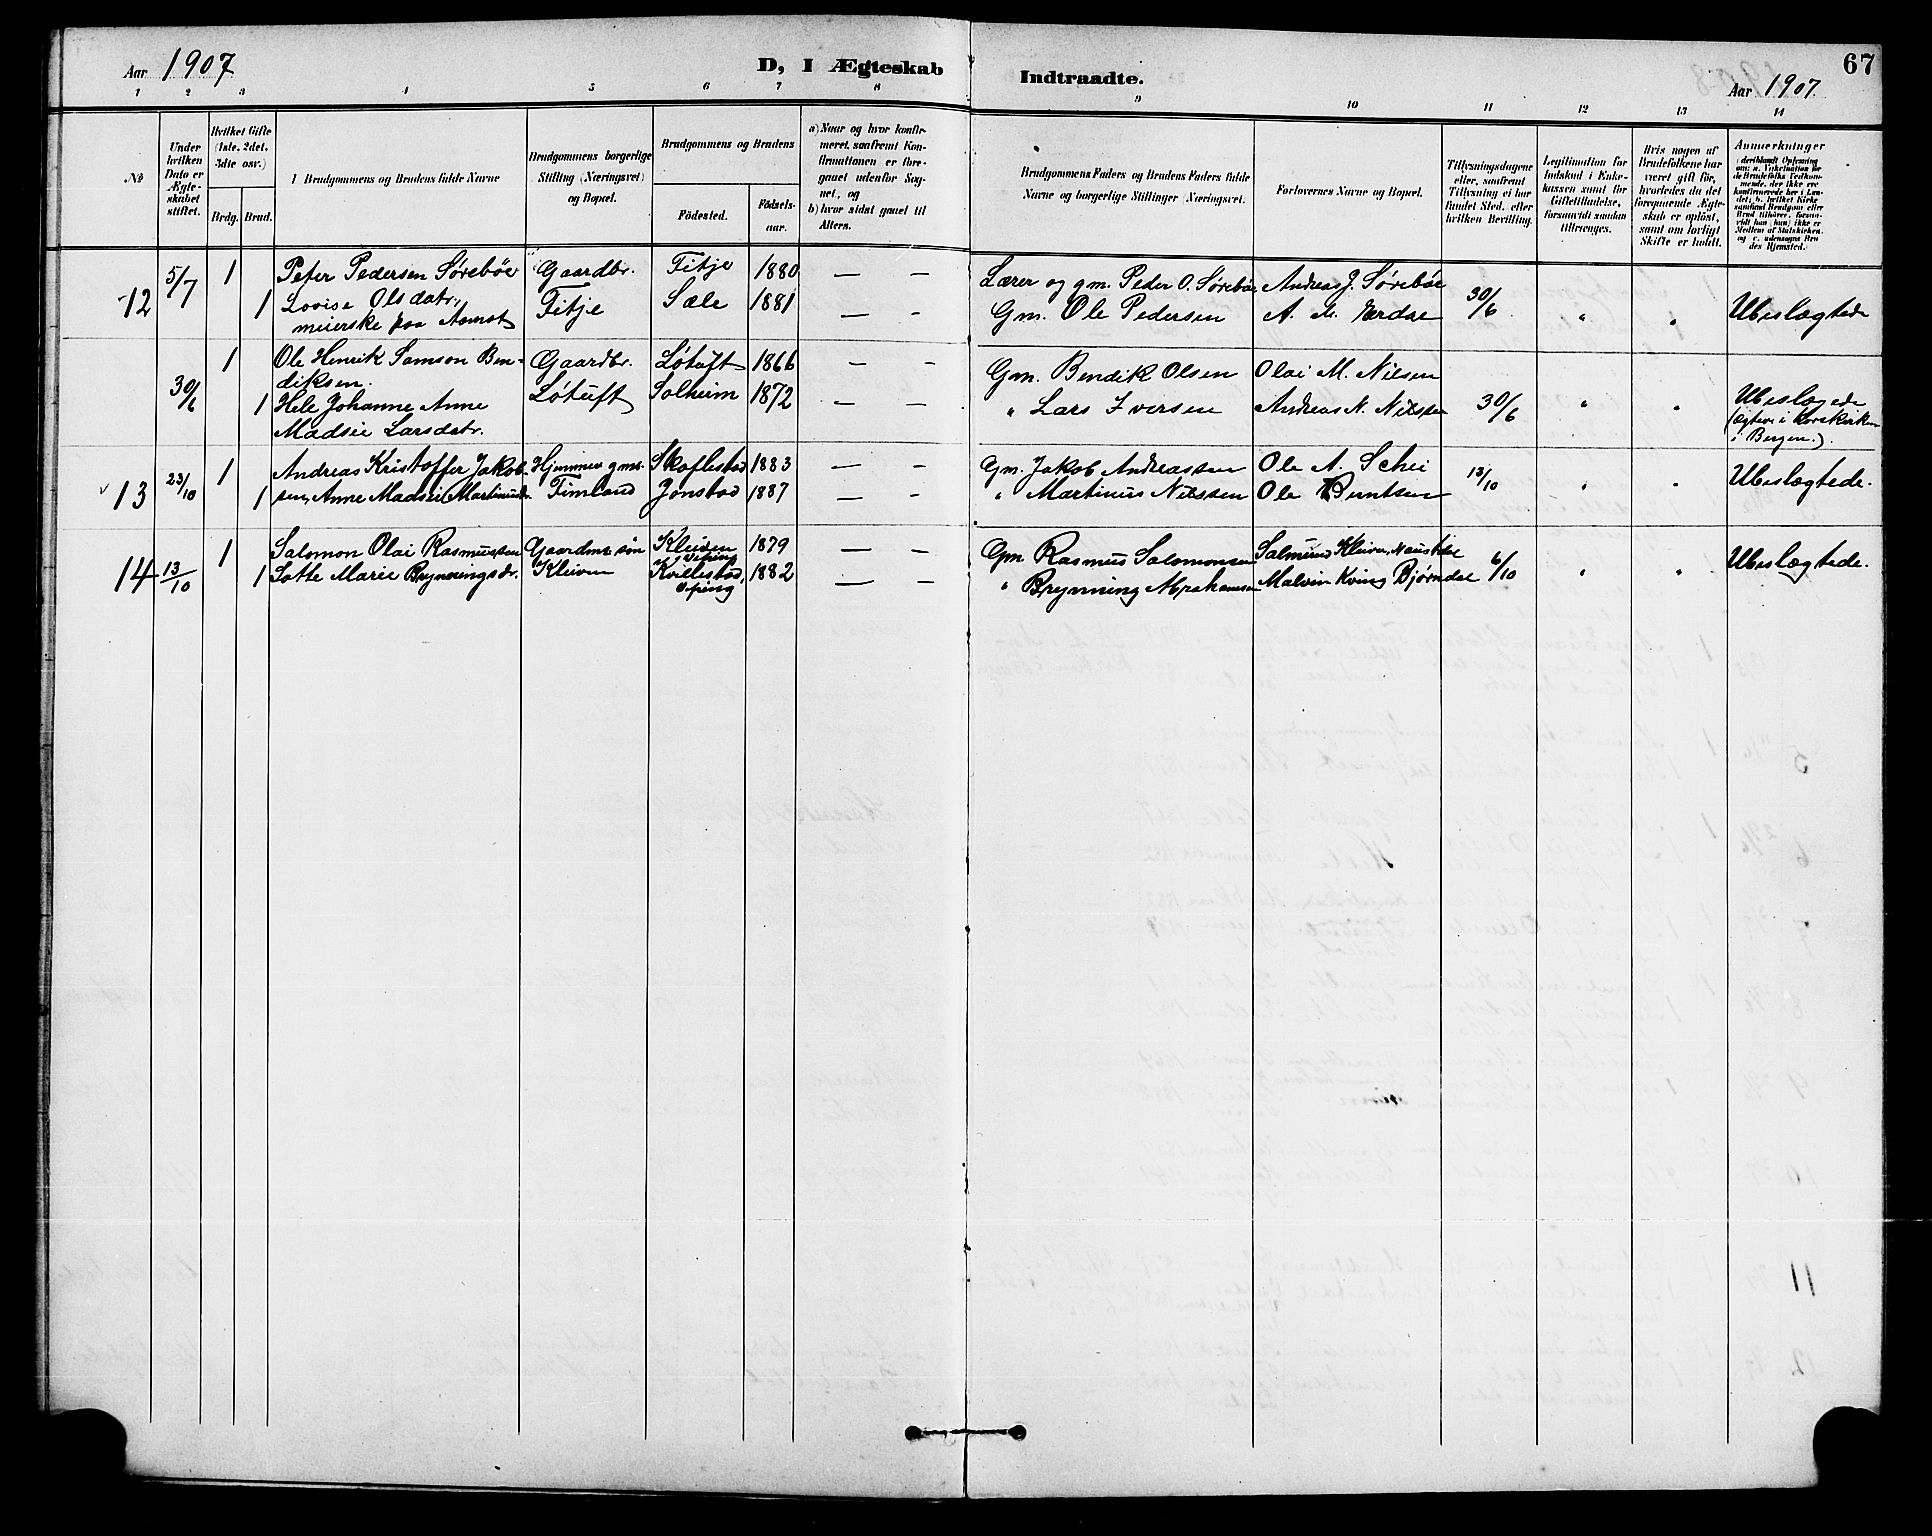 Aar 1907
D, I Ægteskab
Indtraadte.
67
Aar 1907.
1 2 3 4 5 6 7 8 9 10 11 12 13 14
№
Under hvilken Dato er Ægteskabet stiftet.
Hvilket Gifte (1ste, 2det, 3die osv.)
Brdg. Brud.
Brudgommens og Brudens fulde Navne
Brudgommens borgerlige Stilling (Næringsvei) og Bopæl.
Brudgommens og Brudens
Fødested.
Fødselsaar.
a) Naar og hvor konfirmeret, saafremt Konfirmationen er foregaaet udenfor Sognet, og
b) hvor sidst gaaet til Alters.
Brudgommens Faders og Brudens Faders fulde Navne og borgerlige Stillinger (Næringsvei).
Forlovernes Navne og Bopæl.
Tillysningsdagene eller, saafremt Tillysning ei har fundet Sted, efter hvilken Bevilling.
Legitimation for Indskud i Enkekassen samt for Giftetilladelse, forsaavidt saadan tiltrænges.
Hvis nogen af Brudefolkene har været gift før, hvorledes da det foregaaende Ægteskab er opløst, samt om lovligt Skifte er holdt.
Anmerkninger
12 5/7 1 Peter Pedersen Sørebøe Gaardbr. Fitje 1880 — — Lærer og gm. Peder O. Sørebøe Andreas J. Sørebøe 30/6 " " Ubeslægtede
1 Lovise Olsdatr, Fitje Sæle 1881 — — Gm. Ole Pedersen A. M.
meierske paa Aamot
30/6 1 Ole Henrik Samson Ben- Gaardbr. Løtuft 1866 — — Gm. Bendik Olsen Olai M. Nilsen
diksen.
1 Hele Johanne Anne Løtuft Solheim 1872 — — " Lars Iversen Andreas N. Nilssen 30/6 " " Ubeslægtede
Madsie Larsdatr. (ægtev. i Korskirken
i Bergen.).
13 23/10 1 Andreas Kristoffer Jakob- Hjemmev. gms. Skaflestad 1883 — — Gm. Jakob Andreassen Ole A. Schei 13/10 " " Ubeslægtede.
1 sen, Anne Madsie Martinusdr. Timland Jonstad 1887 — — " Martinus Nilssen Ole Berntsen
14 13/10 1 Salomon Olai Rasmussen Gaardm. søn Kleiven 1879 — — Gm Rasmus Salomonsen Salmund Kleiven, Naustdal 6/10 " " Ubeslægtede.
1 Lotte Marie Brynningsdr. Kleiven Kvellestad, 1882 — — " Brynning Abrahamsen Malvin Kving Bjørndal